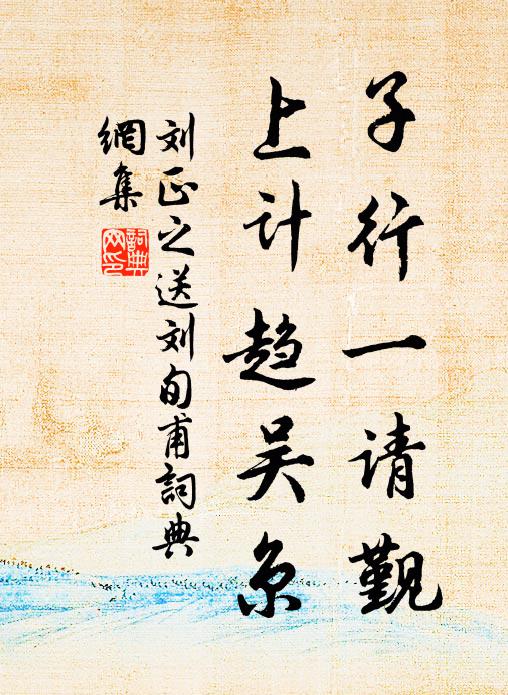 子行一请觐
上计趋吴京
刘正之送刘旬甫詞典
網集
詞典
网印